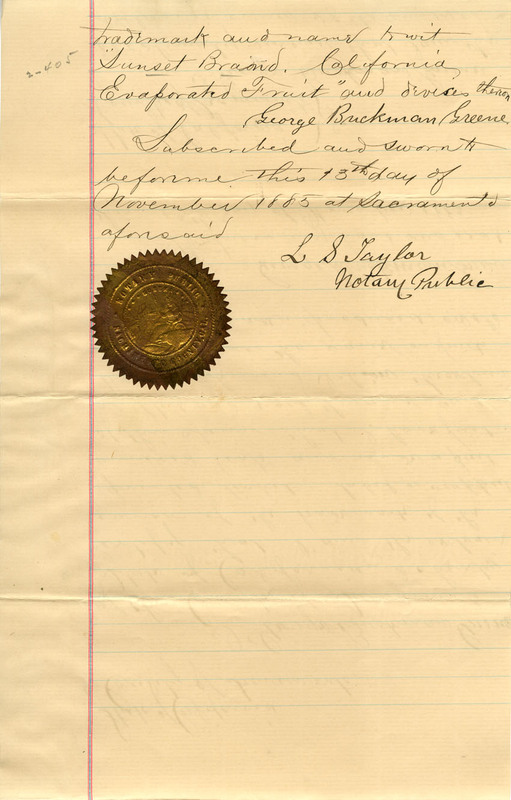 2-405
trademark and name to wit
"Sunset Brand. California
Evaporated Fruit" and devices thereon
George Buckman Greene
Subscribed and sworn to
before me this 13th day of
November 1885 at Sacramento
aforesaid
L S Taylor
Notary Public
NOTARY PUBLIC